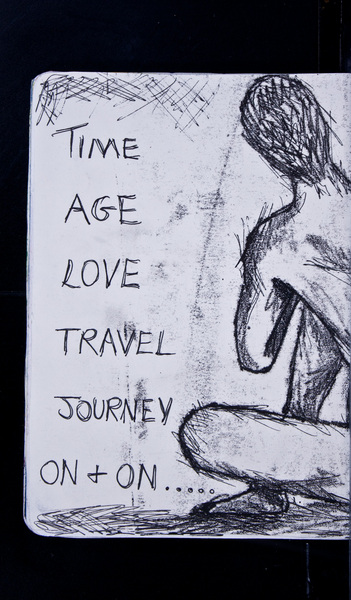 TIME
AGE
LOVE
TRAVEL
JOURNEY
ON + ON.....